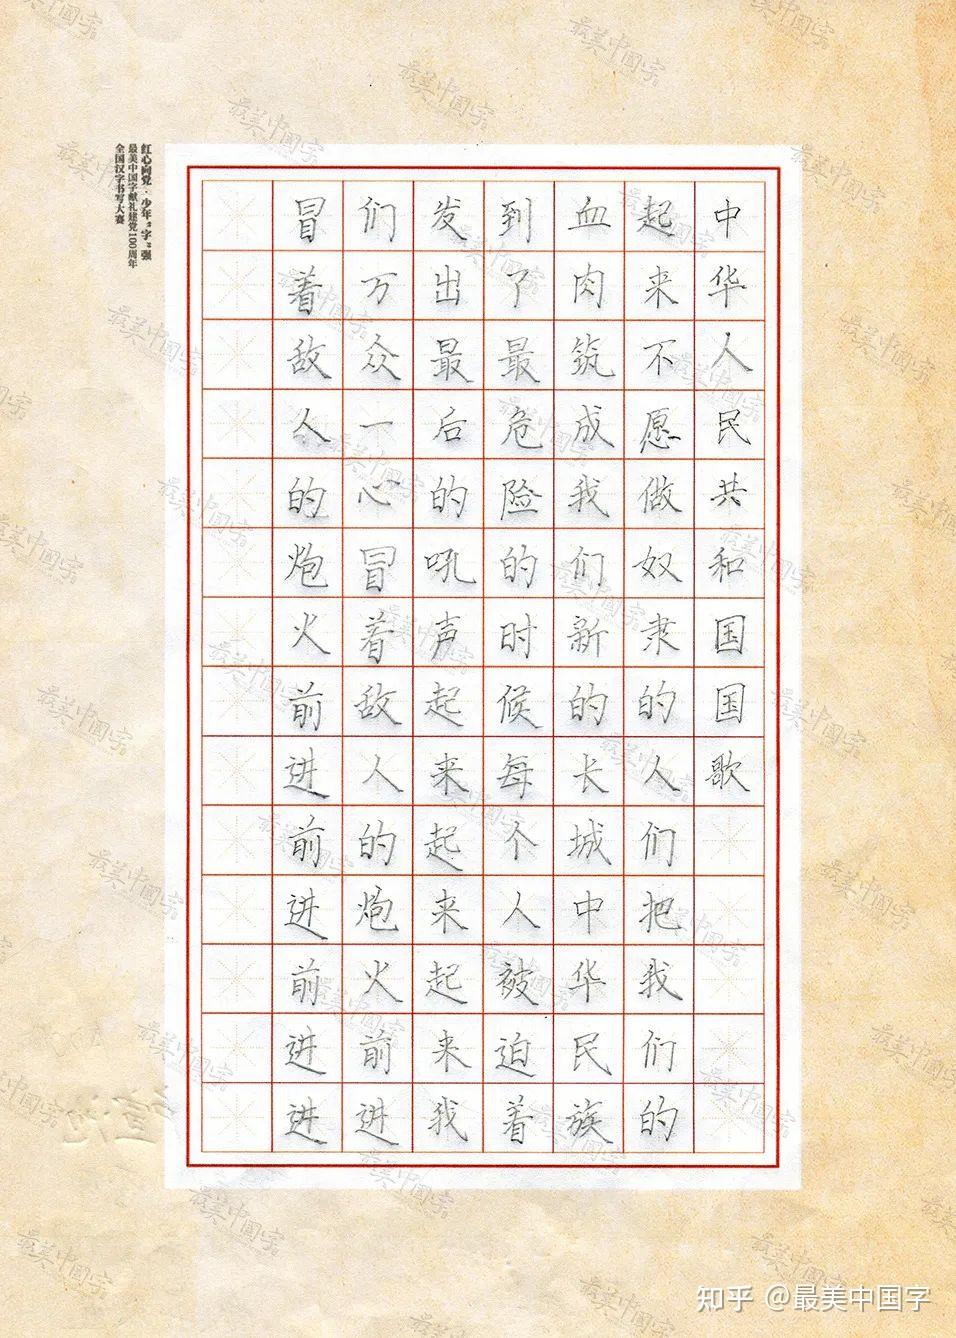 中华人民共和国国歌
起来不愿做奴隶的人们把我们的
血肉筑成我们新的长城中华民族
到了最危险的时候每个人被迫着
发出最后的吼声起来起来起来我
们万众一心冒着敌人的炮火前进
冒着敌人的炮火前进前进前进进
红心向党·少年“字”强
最美中国字献礼建党100周年
全国汉字书写大赛
最美中国字
知乎 @最美中国字